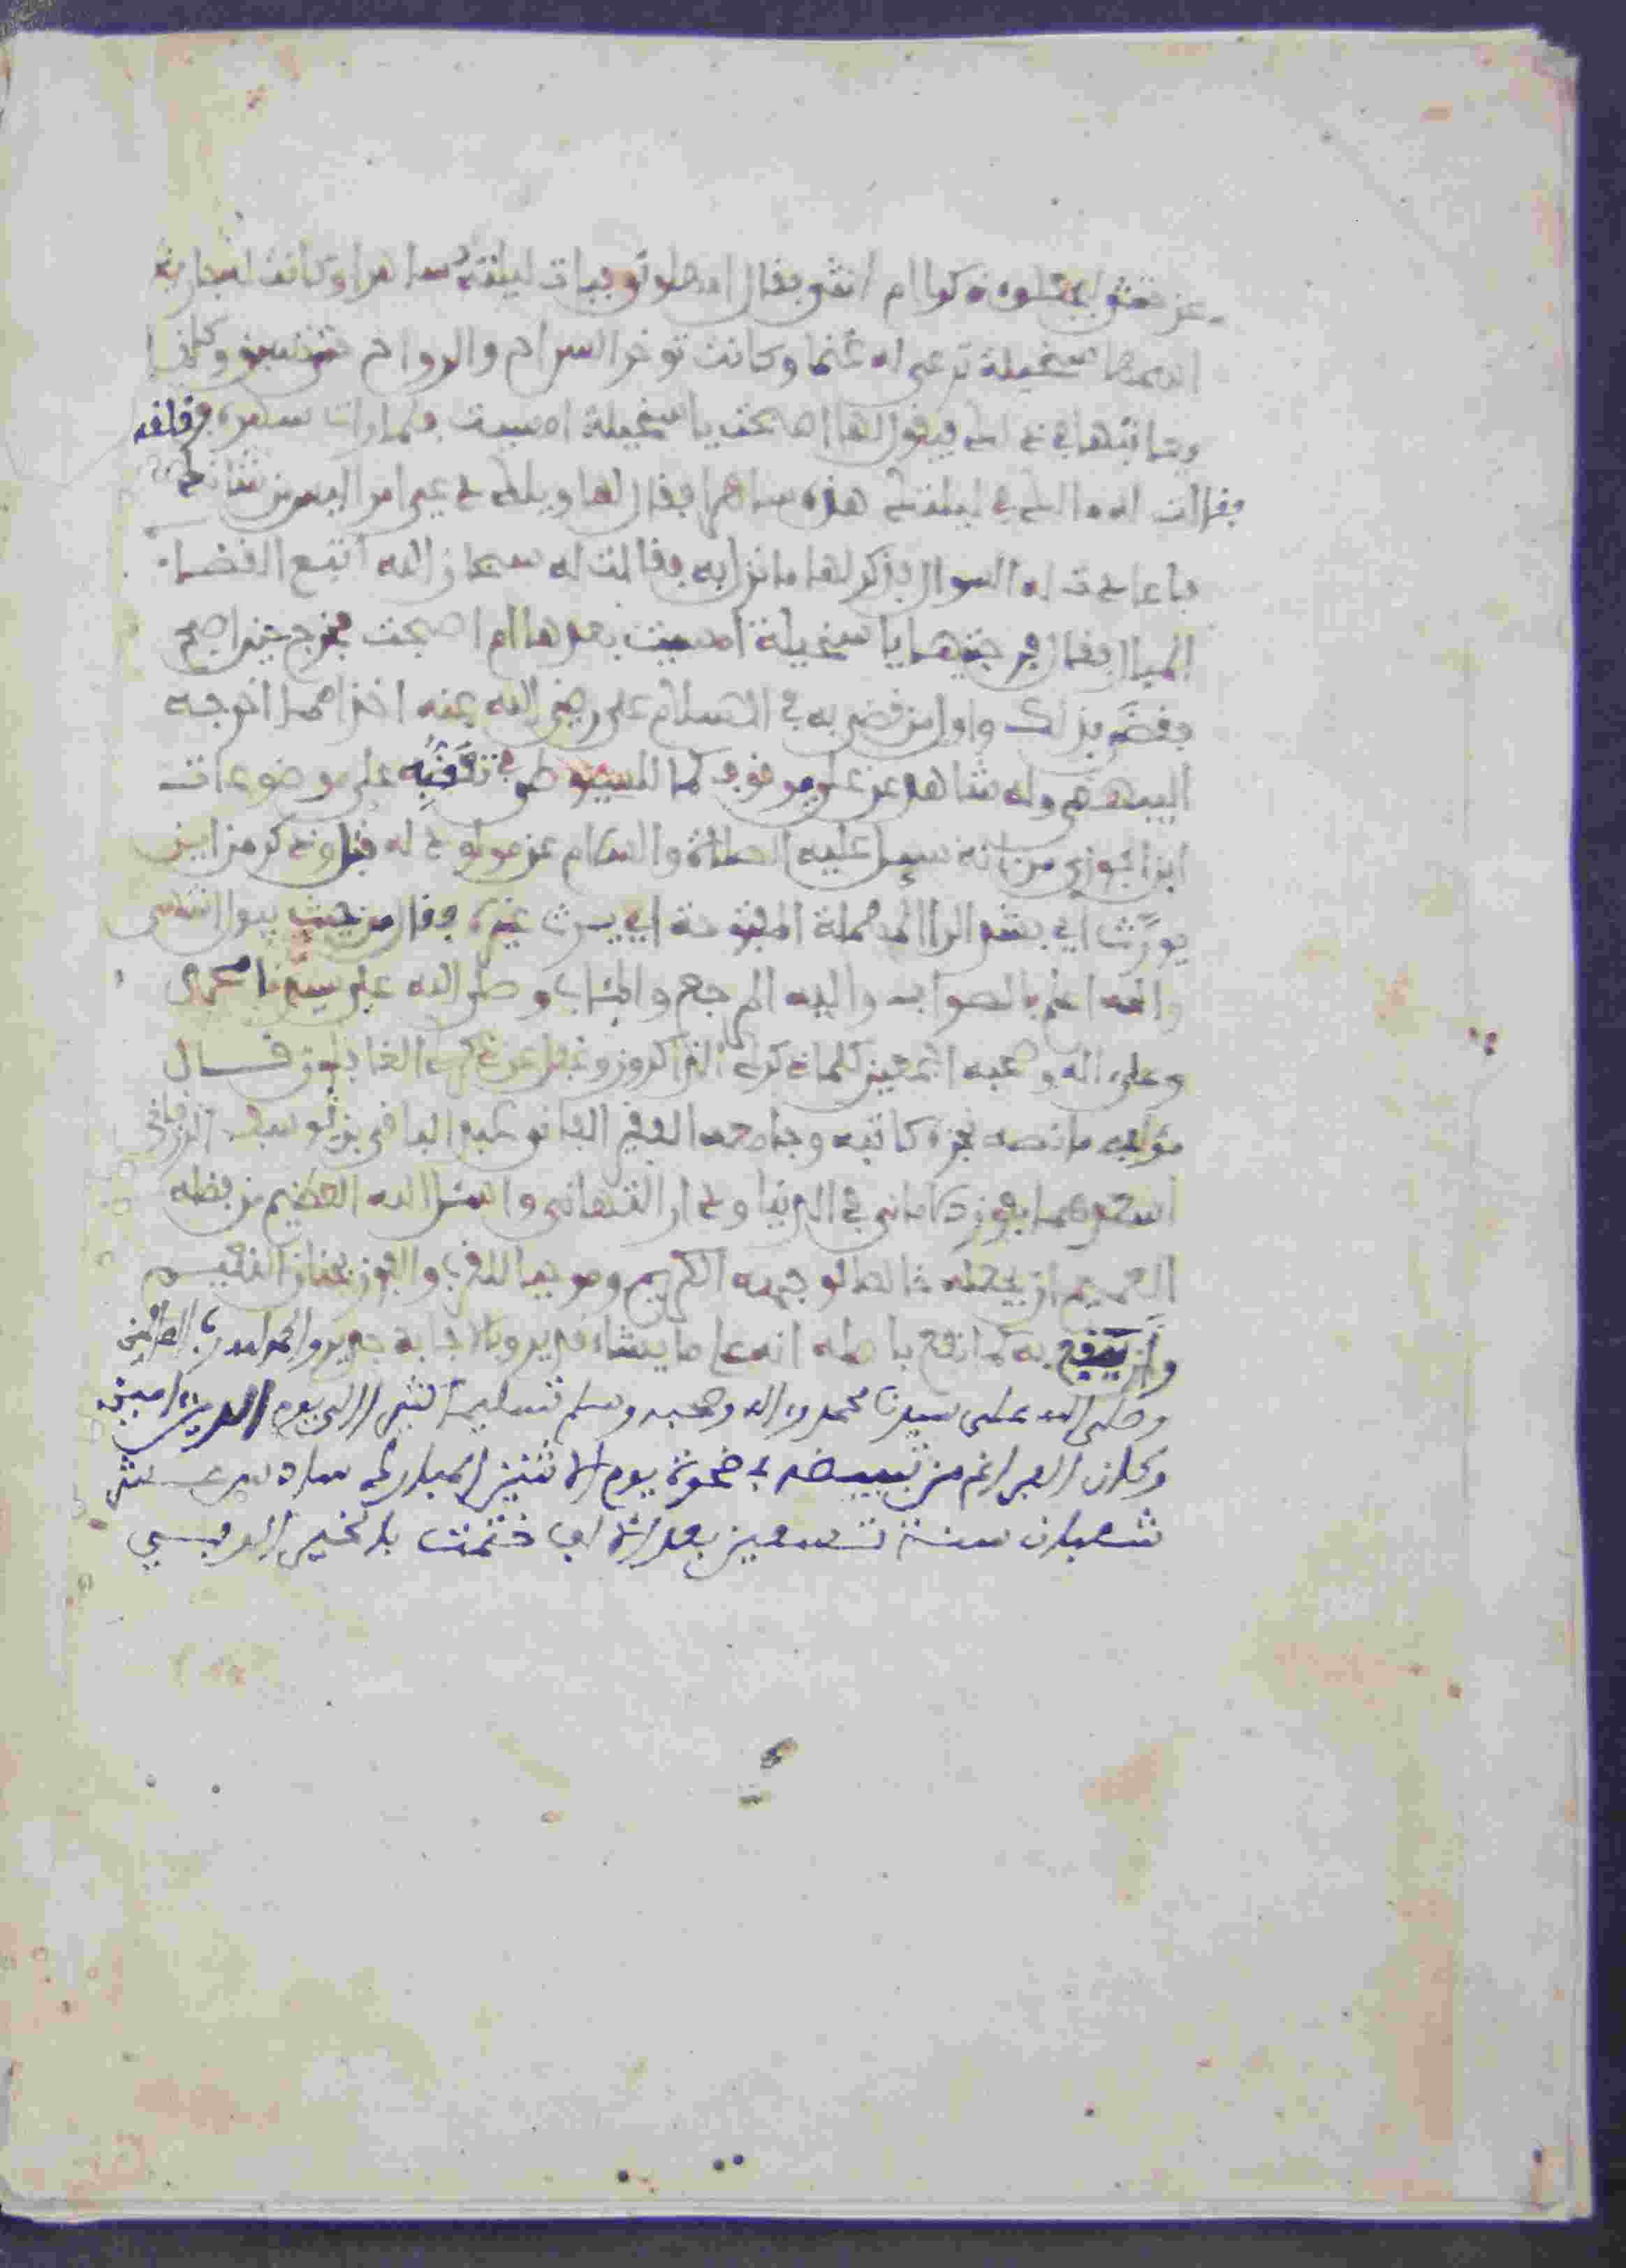 عن خنثى ايجعلوه ذكرا ام انثى فقال امهلوني فبات ليلته ساهرا وكانت له جارية
اسمها سخيلة ترعى له غنما وكانت توخر السراح والرواح حتى تسبق وكان
يعاتبها في ذلك فيقول لها اصبحت يا سخيلة امسيت فلما رات سهره وقلقه
فقالت له مالك في ليلتك هذه ساهرا فقال لها ويلك دعي امرا ليس من شانك
فاعادت له السوال فذكر لها ما نزل به فقالت له سبحان الله اتبع القضاء
المبال فقال فرجتيها يا سخيلة امسيت بعدها ام اصبحت فخرج حين اصبح
فقضى بذلك واول من قضى به في الاسلام علي رضي الله عنه اخذا مما اخرجه
البيهقي وله شاهد عن علي موقوف كما للسيوطي في تعقبه على موضوعات
ابن الجوزي من انه سئل عليه الصلاة والسلام عن مولود له قبل وذكر من اين
يورث اي بفتح الرا المهملة المفتوحة اي يرث غيره فقال من حيث يبول انتهى
والله اعلم بالصواب واليه المرجع والمئاب وصلى الله على سيدنا محمد
وعلى اله وصحبه اجمعين كلما ذكرك الذاكرون وغفل عن ذكرك الغافلون قال
مؤلفه ما نصه نجزه كاتبه وجامعه الفقير الفاني عبد الباقي بن يوسف الزرقاني
اسعدهما بفوز كاماني في الدنيا ودار التهاني واسئل الله العظيم من فضله
العميم ان يجعله خالصا لوجهه الكريم وموجبا للقرب والفوز بجنان النعيم
وان ينفع به كما نفع باصله انه على ما يشاء قدير وبالاجابة جدير والحمد لله رب العالمين
وصلى الله على سيدنا محمد واله وصحبه وسلم تسليما كثيرا الى يوم الدين امين
وكان الفراغ من تبييضه ضحوة يوم الاثنين المبارك سادس عشر
شعبان سنة تسعين بعد الالف ختمت بالخير